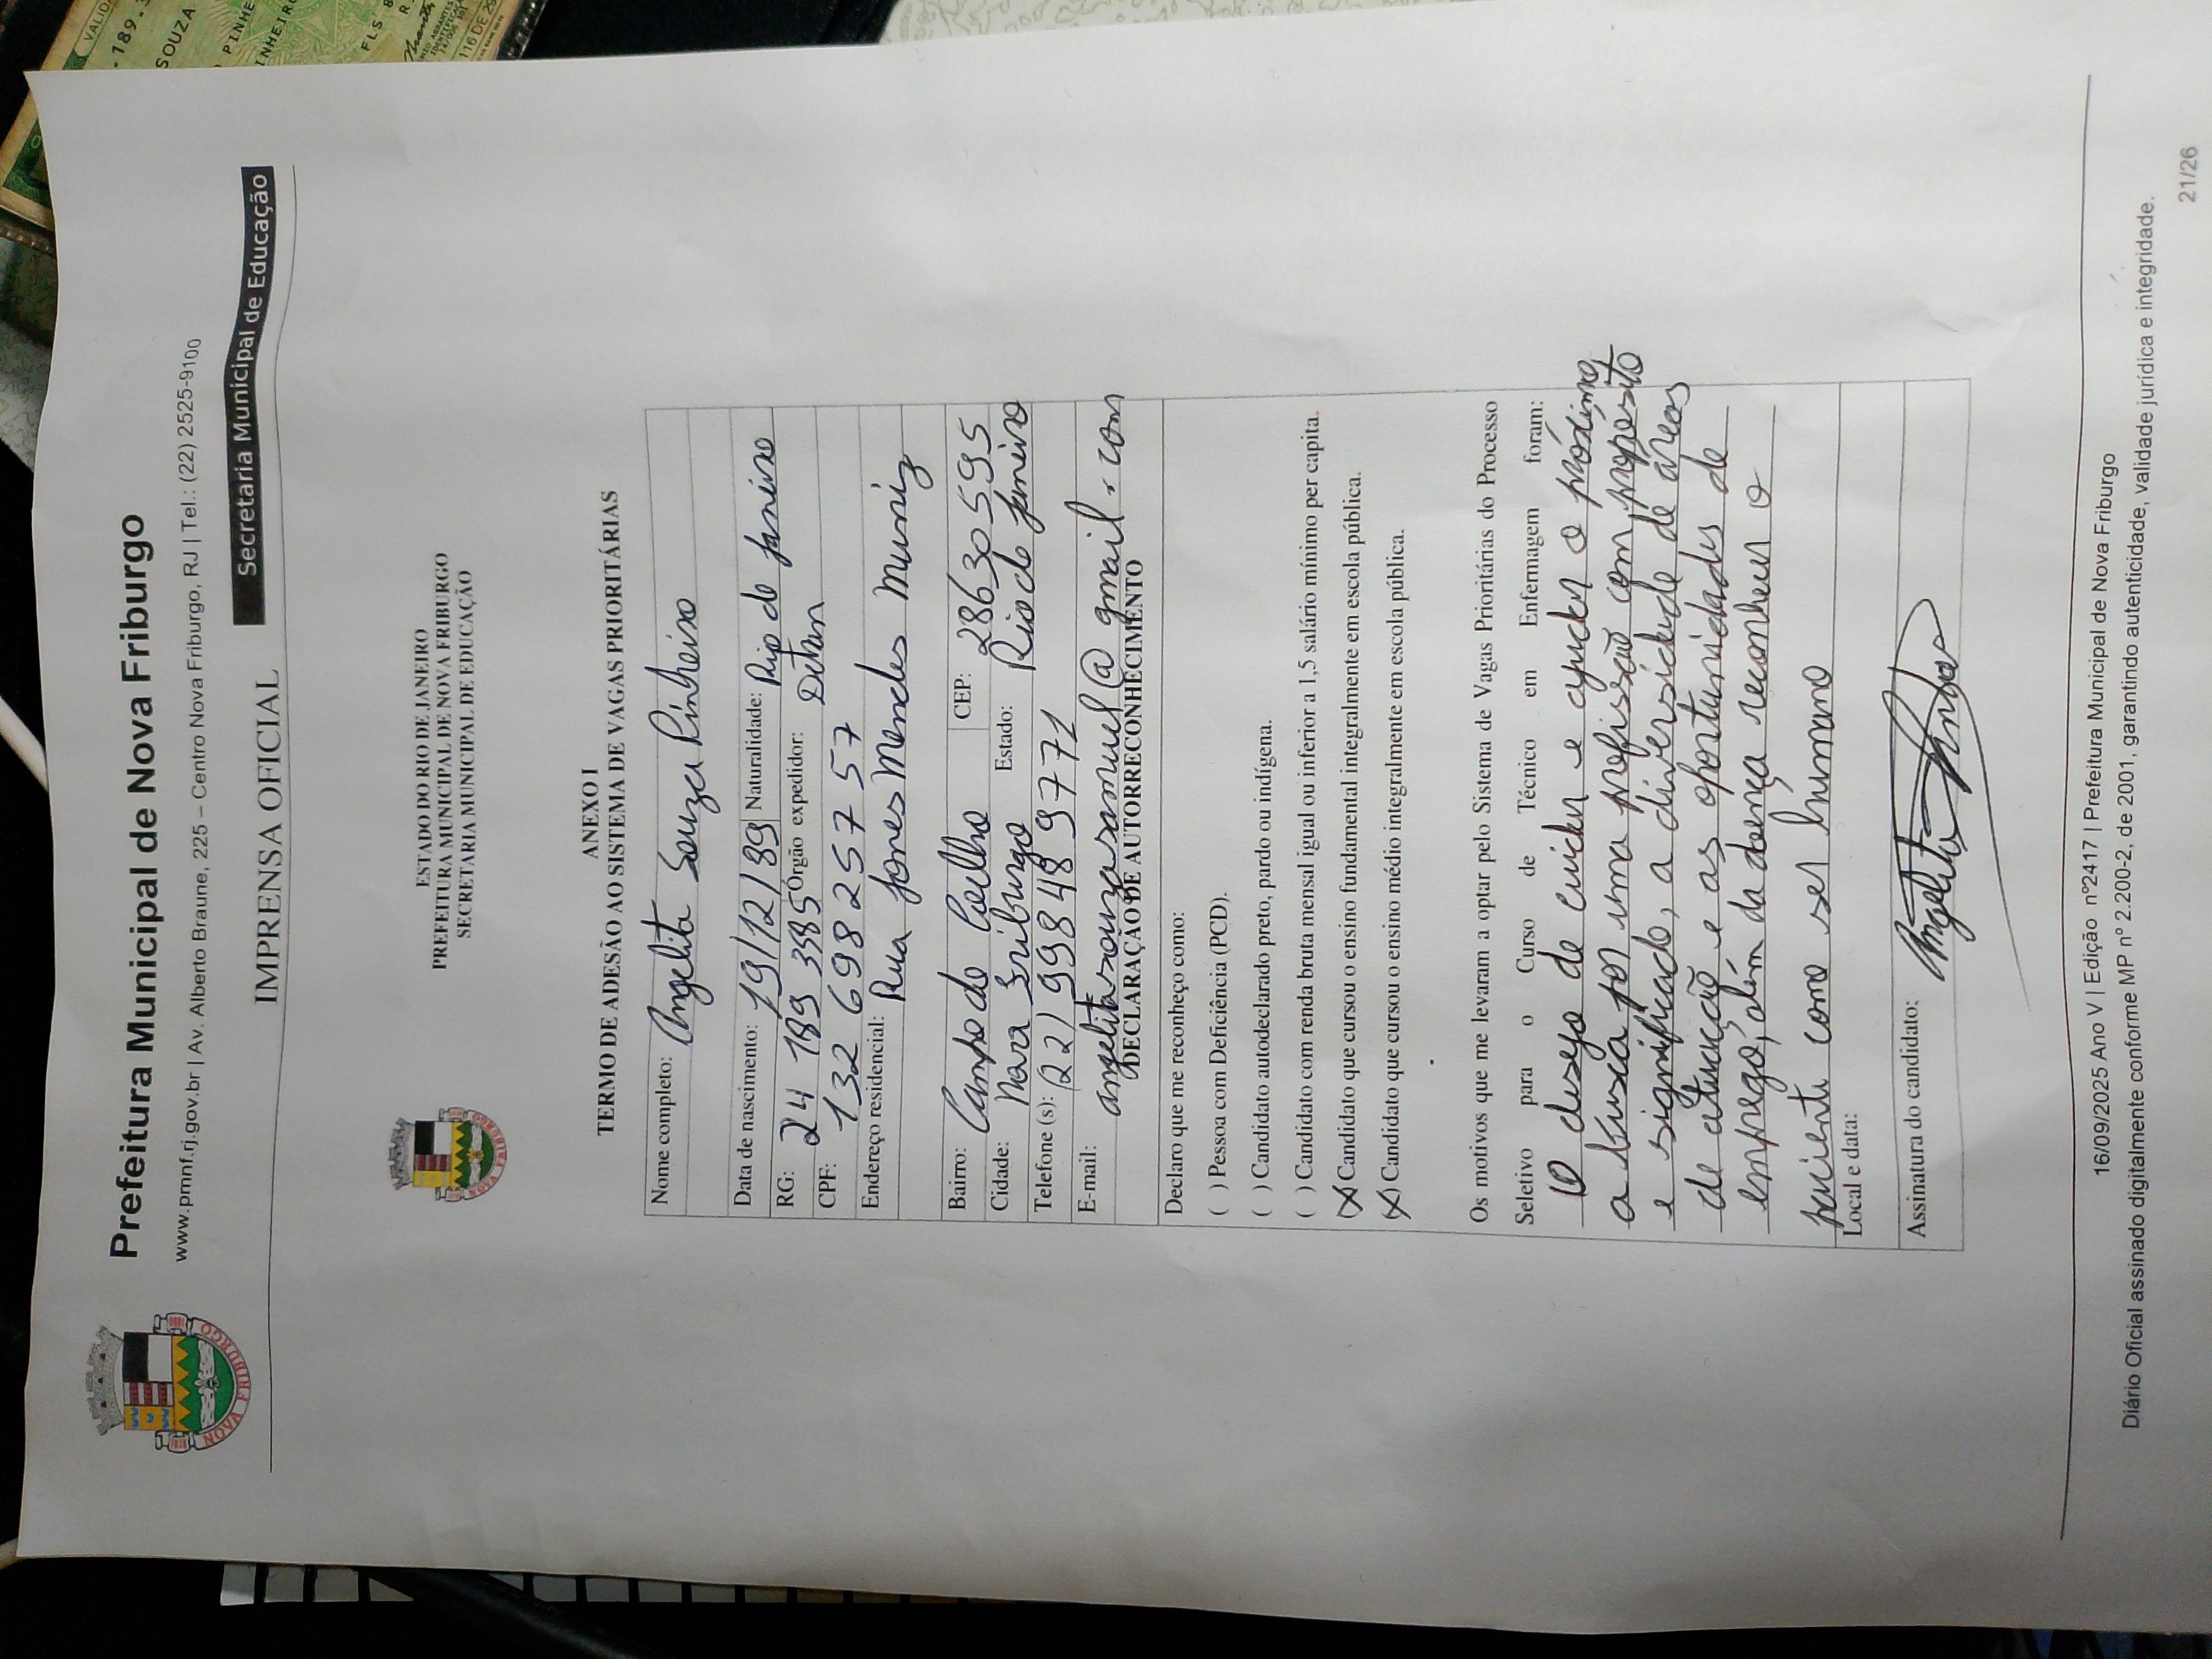 Prefeitura Municipal de Nova Friburgo
www.pmnf.rj.gov.br | Av. Alberto Braune, 225 – Centro Nova Friburgo, RJ | Tel.: (22) 2525-9100
Secretaria Municipal de Educação
IMPRENSA OFICIAL
NOVA FRIBURGO
ESTADO DO RIO DE JANEIRO
PREFEITURA MUNICIPAL DE NOVA FRIBURGO
SECRETARIA MUNICIPAL DE EDUCAÇÃO
NOVA FRIBURGO
ANEXO I
TERMO DE ADESÃO AO SISTEMA DE VAGAS PRIORITÁRIAS
Nome completo: Angelita Souza Pinheiro
Data de nascimento: 19/12/89 Naturalidade: Rio de Janeiro
RG: 24 189 3585 Órgão expedidor: Detran
CPF: 132 698257 57
Endereço residencial: Rua Jones Mendes Muniz
Bairro: Campo do Coelho CEP: 28630595
Cidade: Nova Friburgo Estado: Rio de Janeiro
Telefone (s): (22) 99848 9771
E-mail: angelitasouzasamuel@gmail.com
DECLARAÇÃO DE AUTORRECONHECIMENTO
Declaro que me reconheço como:
( ) Pessoa com Deficiência (PCD).
( ) Candidato autodeclarado preto, pardo ou indígena.
( ) Candidato com renda bruta mensal igual ou inferior a 1,5 salário mínimo per capita.
(X) Candidato que cursou o ensino fundamental integralmente em escola pública.
(X) Candidato que cursou o ensino médio integralmente em escola pública.
Os motivos que me levaram a optar pelo Sistema de Vagas Prioritárias do Processo
Seletivo para o Curso de Técnico em Enfermagem foram:
O desejo de cuidar e ajudar o próximo,
a busca por uma profissão com propósito
e significado, a diversidade de áreas
de atuação e as oportunidades de
emprego, além da doença reconhecer o
paciente como ser humano
Local e data:
Assinatura do candidato: Angelita
16/09/2025 Ano V | Edição nº2417 | Prefeitura Municipal de Nova Friburgo
Diário Oficial assinado digitalmente conforme MP nº 2.200-2, de 2001, garantindo autenticidade, validade jurídica e integridade.
21/26
.189.
SOUZA
PINHE
INHEIR
FLS 8
116 DE 29